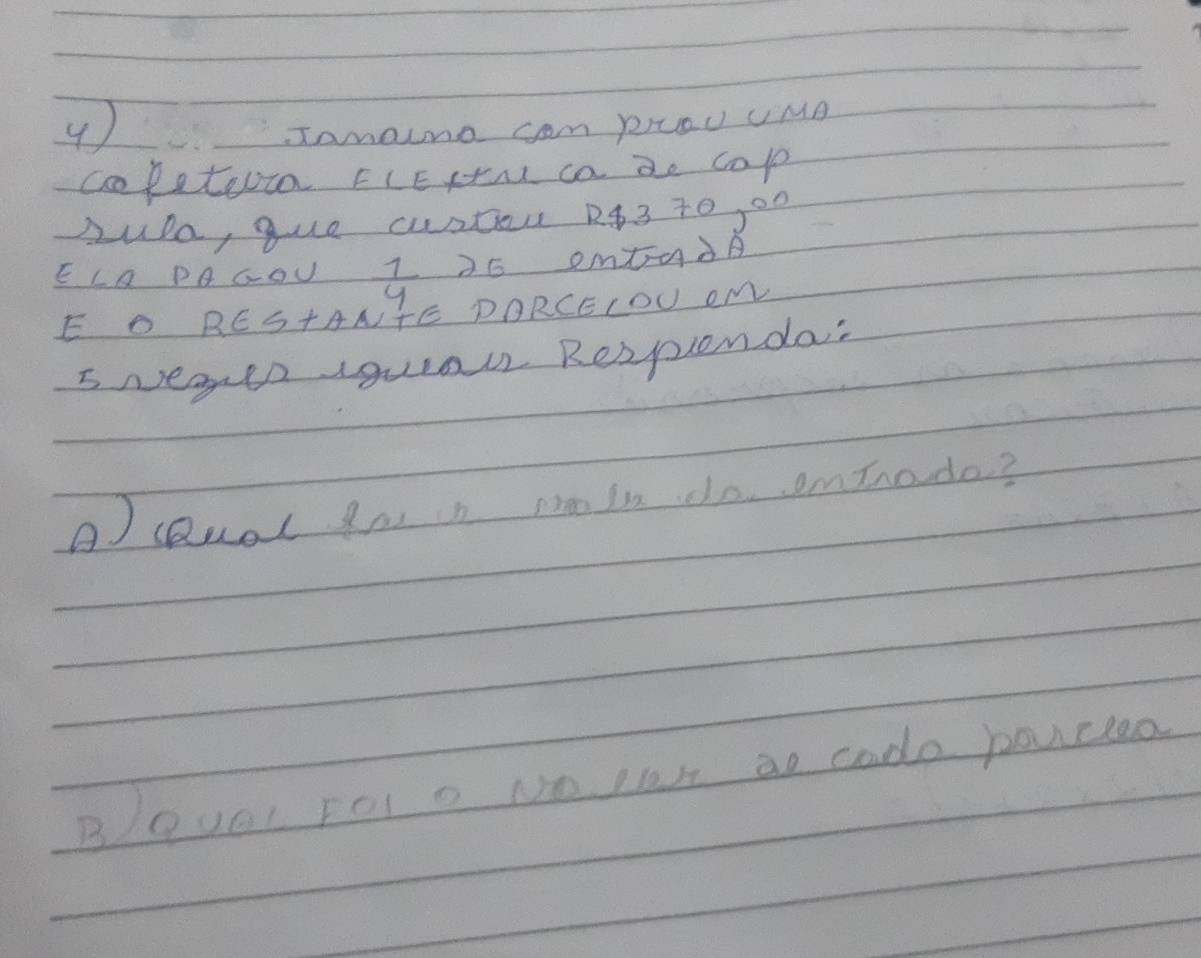 4) Janaina comprou UMA
cafeteira ELEtrica de cap
sula, que custou R$370,00
ELA PAGOU 1/4 DE entradA
E O REStANtE PARCELOU em
5 vezes iguais Responda:
A) Qual foi o valor da entrada?
B) QUAL FOI O valor de cada parcela